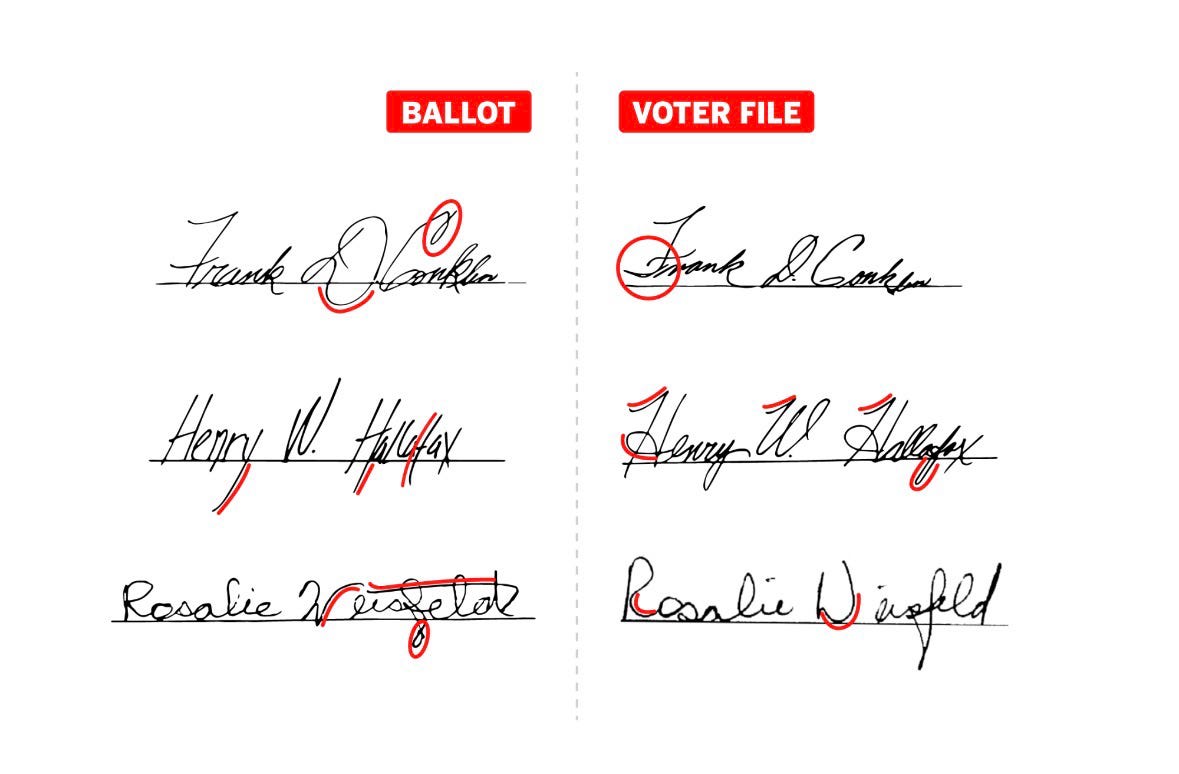 BALLOT VOTER FILE
Frank D Conklin Frank D. Conklin
Henry W. Hallofax Henry W. Hallofax
Rosalie Weisfeld Rosalie Weisfeld